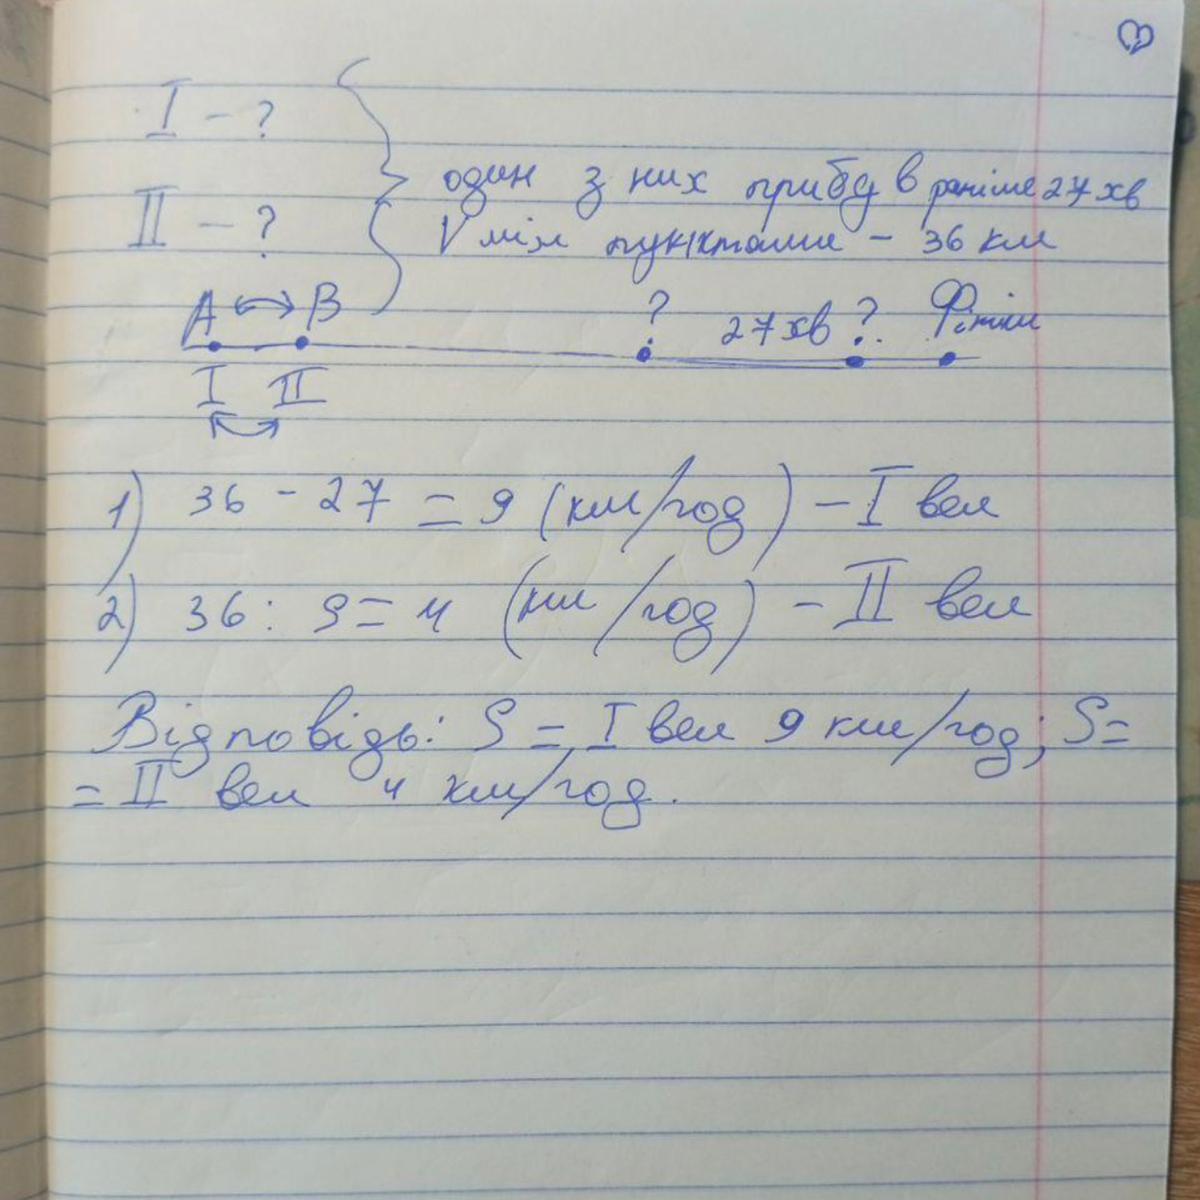 I - ?
один з них прибув раніше 27 хв
II - ?
V між пунктами - 36 км
A B
? 27 хв ? Фініш
I II
1) 36 - 27 = 9 (км/год) - I вел
2) 36 : 9 = 4 (км/год) - II вел
Відповідь: S = I вел 9 км/год; S =
= II вел 4 км/год.